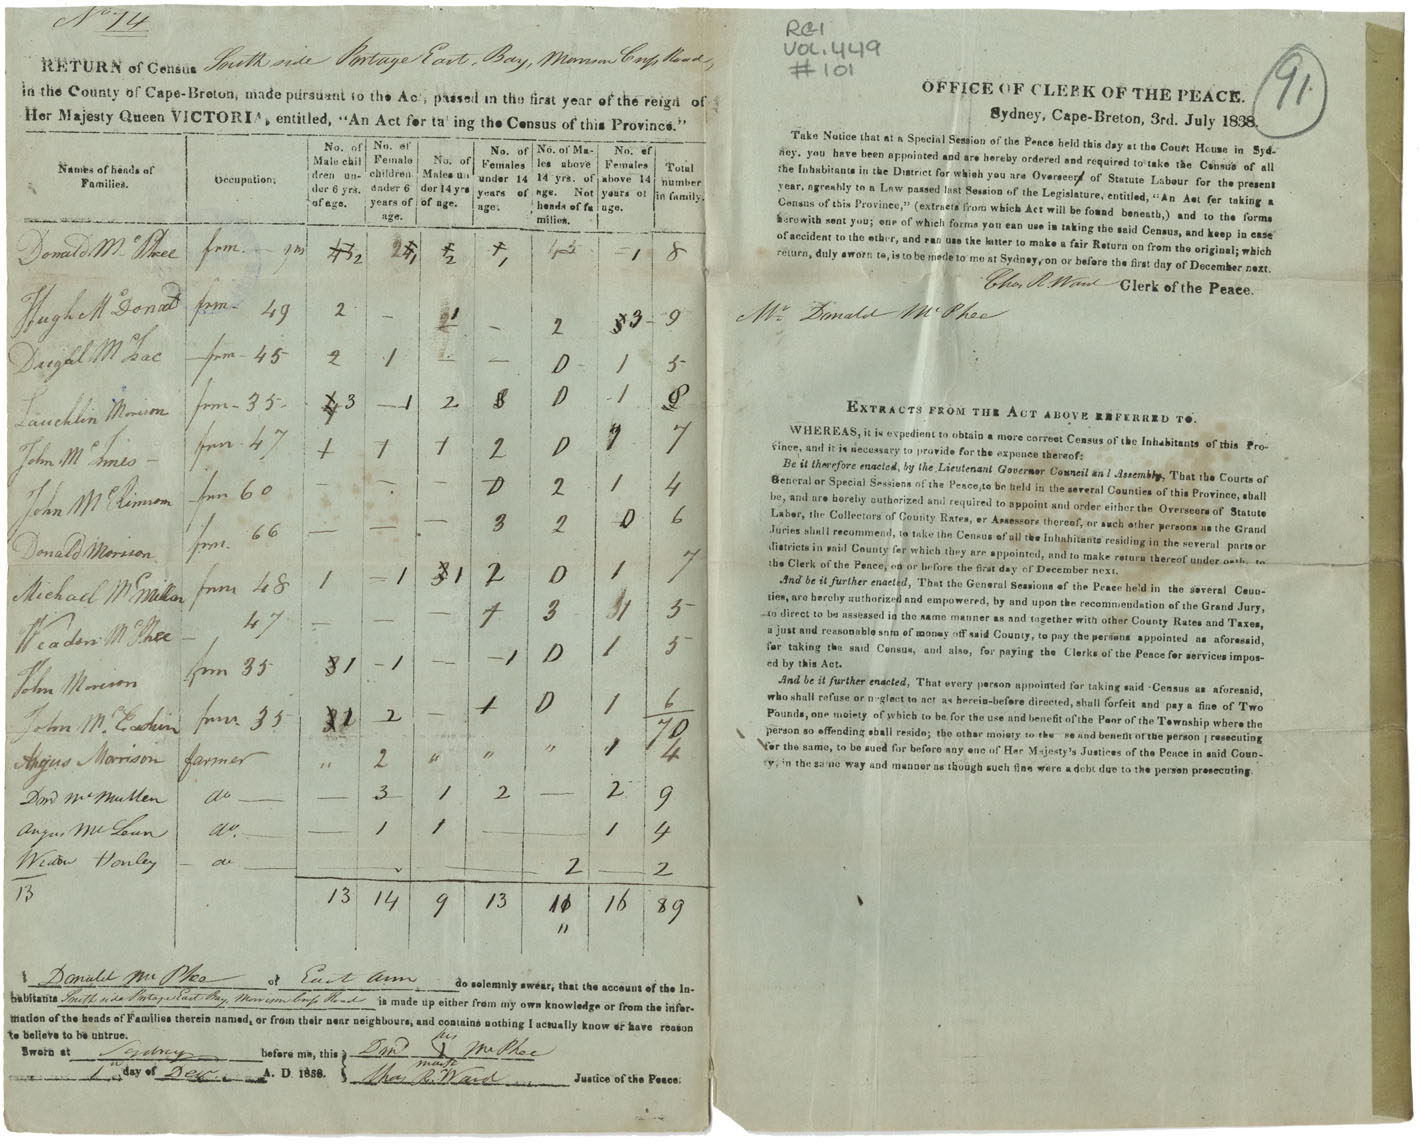 No. 14
RETURN of Census South side Portage East Bay, Morison Cross Road,
in the County of Cape-Breton, made pursuant to the Act, passed in the first year of the reign of
Her Majesty Queen VICTORIA, entitled, "An Act for taking the Census of this Province."
Names of heads of Families. Occupation; No. of Male children under 6 yrs. of age. No. of Female children under 6 years of age. No. of Males under 14 yrs of age. No. of Females under 14 years of age. No. of Males above 14 yrs. of age. Not heads of families. No. of Females above 14 years of age. Total number in family.
Donald McPhee frm 2 1 2 1 1 8
Hugh McDonald frm 49 2 – 1 – 2 3 – 9
Dugal McIsac frm 45 2 1 – – 0 1 5
Lauchlin Morison frm 35 3 1 2 0 1 8
John McInnes frm 47 1 1 1 2 0 7
John McKinnon frm 60 0 2 1 4
Donald Morison frm. 66 – – – 3 2 0 6
Michael McMillan frm 48 1 1 1 2 0 1 7
Weadow McPhee – 47 – – – 1 3 1 5
John Morison frm 35 1 1 – 1 0 1 5
John McEachin frm 35 2 – 1 0 1 6
70
Angus Morrison farmer " 2 " " " 1 4
Dond McMullen do — — 3 1 2 — 2 9
Angus McLean do. — — 1 1 — — 1 4
Widow Hanley – do — 2 — 2
13 13 14 9 13 11 16 89
"
I Donald McPhee of East Arm do solemnly swear, that the account of the In-
habitants South side Portage East Bay, Morrison Cross Road is made up either from my own knowledge or from the infor-
mation of the heads of Families therein named, or from their near neighbours, and contains nothing I actually know or have reason
to believe to be untrue.
Sworn at Sydney before me, this } Dond his mark McPhee
1st day of Decr. A. D. 1838. } Chas R. Ward Justice of the Peace.
RG1
VOL. 449
#101
91.
OFFICE OF CLERK OF THE PEACE.
Sydney, Cape-Breton, 3rd. July 1838.
Take Notice that at a Special Session of the Peace held this day at the Court House in Syd-
ney, you have been appointed and are hereby ordered and required to take the Census of all
the Inhabitants in the District for which you are Overseer of Statute Labour for the present
year, agreably to a Law passed last Session of the Legislature, entitled, "An Act for taking a
Census of this Province," (extracts from which Act will be found beneath,) and to the forms
herewith sent you; one of which forms you can use in taking the said Census, and keep in case
of accident to the other, and can use the latter to make a fair Return on from the original; which
return, duly sworn to, is to be made to me at Sydney, on or before the first day of December next.
Chas R. Ward Clerk of the Peace.
Mr Donald McPhee
EXTRACTS FROM THE ACT ABOVE REFERRED TO.
WHEREAS, it is expedient to obtain a more correct Census of the Inhabitants of this Pro-
vince, and it is necessary to provide for the expence thereof:
Be it therefore enacted, by the Lieutenant Governor Council and Assembly, That the Courts of
General or Special Sessions of the Peace, to be held in the several Counties of this Province, shall
be, and are hereby authorized and required to appoint and order either the Overseers of Statute
Labor, the Collectors of County Rates, or Assessors thereof, or such other persons as the Grand
Juries shall recommend, to take the Census of all the Inhabitants residing in the several parts or
districts in said County for which they are appointed, and to make return thereof under oath, to
the Clerk of the Peace, on or before the first day of December next.
And be it further enacted, That the General Sessions of the Peace held in the several Coun-
ties, are hereby authorized and empowered, by and upon the recommendation of the Grand Jury,
to direct to be assessed in the same manner as and together with other County Rates and Taxes,
a just and reasonable sum of money off said County, to pay the persons appointed as aforesaid,
for taking the said Census, and also, for paying the Clerks of the Peace for services impos-
ed by this Act.
And be it further enacted, That every person appointed for taking said Census as aforesaid,
who shall refuse or neglect to act as herein-before directed, shall forfeit and pay a fine of Two
Pounds, one moiety of which to be for the use and benefit of the Poor of the Township where the
person so offending shall reside; the other moiety to the use and benefit of the person prosecuting
for the same, to be sued for before any one of Her Majesty's Justices of the Peace in said Coun-
ty, in the same way and manner as though such fine were a debt due to the person prosecuting.